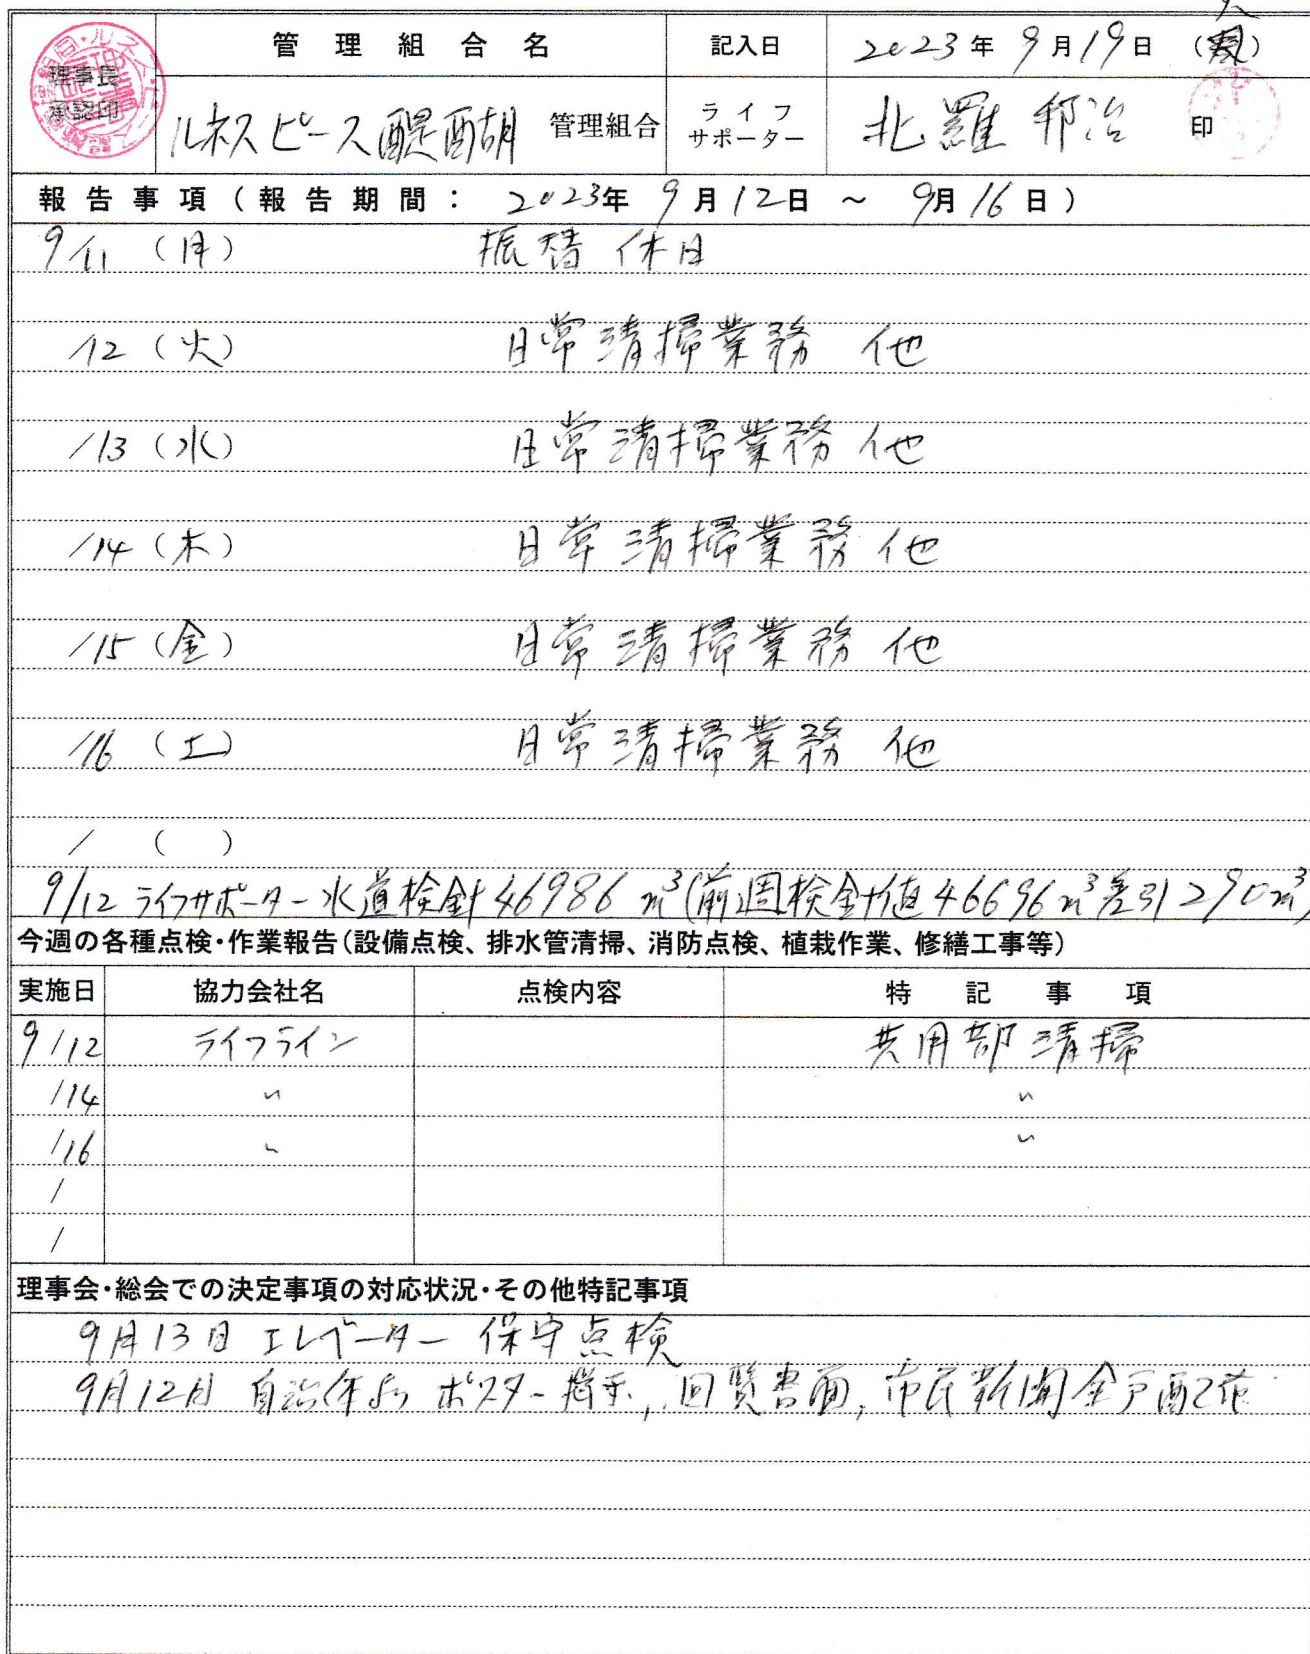 管理組合名 記入日 2023年9月19日（火）
理事長
承認印
ルネスピース醍醐 管理組合 ライフサポーター 北羅 邦治 印
報告事項（報告期間： 2023年 9月12日 ～ 9月16日）
9/11（月） 振替休日
/12（火） 日常清掃業務 他
/13（水） 日常清掃業務 他
/14（木） 日常清掃業務 他
/15（金） 日常清掃業務 他
/16（土） 日常清掃業務 他
/ （ ）
9/12 ライフサポーター水道検針46986㎥(前週検針値46696㎥差引290㎥)
今週の各種点検・作業報告（設備点検、排水管清掃、消防点検、植栽作業、修繕工事等）
実施日 協力会社名 点検内容 特記事項
9/12 ライフライン 共用部清掃
/14 〃 〃
/16 〃 〃
/
/
理事会・総会での決定事項の対応状況・その他特記事項
9月13日 エレベーター保守点検
9月12日 自治体より ポスター掲示,回覧書面,市民新聞全戸配布